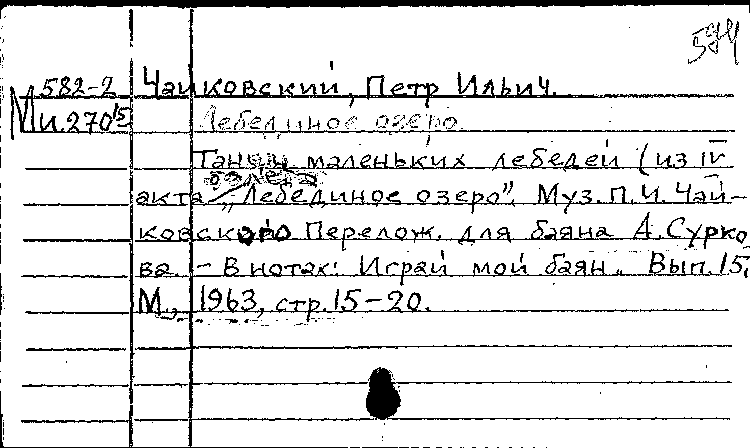 594
582-2 Чайковский, Петр Ильич.
М и.270¹⁵ Лебединое озеро
Танец маленьких лебедей (из IV
балета
акта „Лебединое озеро". Муз. П.И. Чай-
ковского Перелож. для баяна А. Сурко
ва. - В нотах: Играй мой баян. Вып. 15.
М., 1963, стр. 15-20.